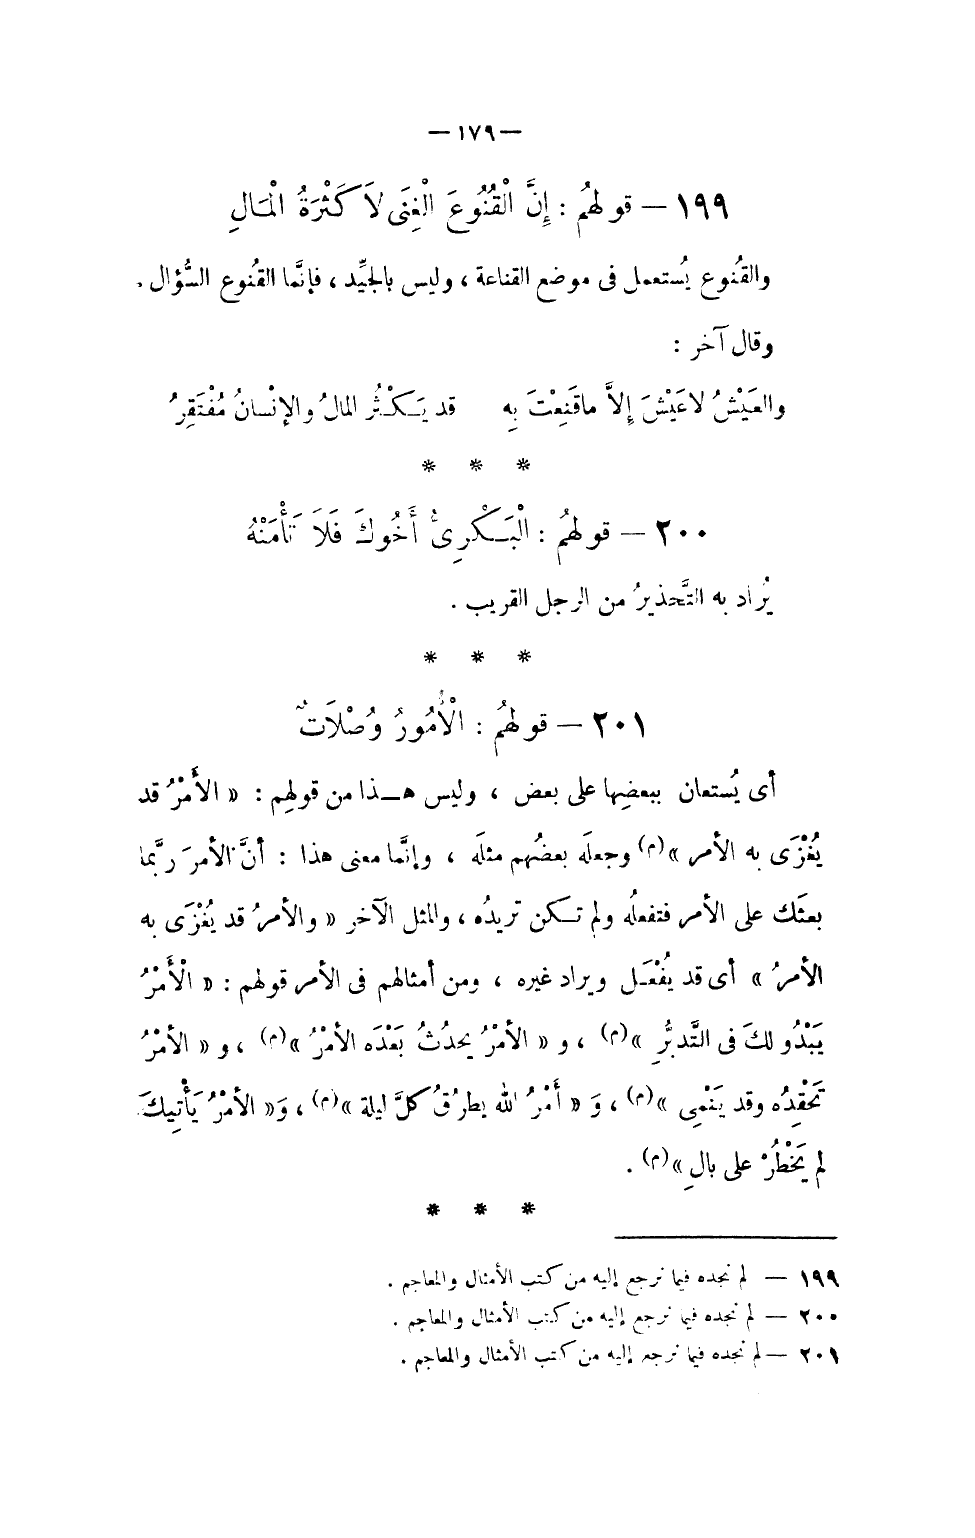 — ١٧٩ —
١٩٩ — قولهمُ : إِنَّ الْقُنُوعَ الْغِنَى لاَ كَثْرَةُ الْمَالِ
والقُنوع يُستعمل فى موضع القناعة ، وليس بالجيِّد ، فإنَّما القُنوع السُّؤال .
وقال آخر :
والعَيْشُ لاعَيْشَ إِلاَّ ماقَنِعْتَ بِهِ قد يَكْثُر المالُ والإنْسانُ مُفْتَقِرُ
* * *
٢٠٠ — قولهمُ : الْبَكْرِىُّ أَخُوكَ فَلَا تَأْمَنْهُ
يُراد به التَّحذيرُ من الرجل القريب .
* * *
٢٠١ — قولهمُ : الْأُمُورُ وُصْلَاتٌ
أى يُستعان ببعضِها على بعض ، وليس هـذا من قولهِم : « الأَمْرُ قد
يُغْزَى به الأمر »(م) وجعلَه بعضُهم مثلَه ، وإنَّما معنى هذا : أنَّ الأمرَ ربَّما
بعثَك على الأمر فتفعلُه ولم تكن تريدُه ، والمثل الآخر « والأمرُ قد يُغْزَى به
الأمرُ » أى قد يُفْعَـل ويراد غيره ، ومن أمثالهم فى الأمر قولهم : « الْأَمْرُ
يَبْدُو لكَ فى التَّدبرُّ »(م) ، و « الأمْرُ يحدثُ بَعْدَه الأمْرُ »(م) ، و « الأمْرُ
تَحْقِدُه وقد يَنْمِى »(م) ، وَ « أَمْرُ الله يطرُقُ كلَّ ليلة »(م) ، وَ« الأمْرُ يَأْتِيكَ
لم يَخْطُرْ على بالِ »(م) .
* * *
١٩٩ — لم نجده فيما نرجع إليه من كتب الأمثال والمعاجم .
٢٠٠ — لم نجده فيما نرجع إليه من كتب الأمثال والمعاجم .
٢٠١ — لم نجده فيما نرجع إليه من كتب الأمثال والمعاجم .